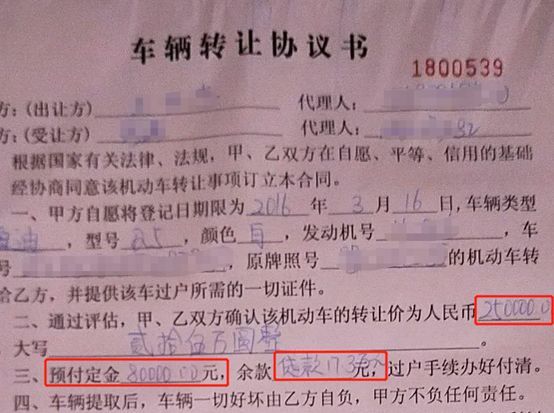 车辆转让协议书
1800539
方:(出让方) 代理人:
方:(受让方) 代理人:
根据国家有关法律、法规,甲、乙双方在自愿、平等、信用的基础
经协商同意该机动车转让事项订立本合同。
一、甲方自愿将登记日期限为2016年3月16日,车辆类型
,型号,颜色白,发动机号,车
号,原牌照号的机动车转
给乙方,并提供该车过户所需的一切证件。
二、通过评估,甲、乙双方确认该机动车的转让价为人民币250000.0
。大写贰拾伍万圆整。
三、预付定金80000.00元,余款贷款17.3万元,过户手续办好付清。
四、车辆提取后,车辆一切好坏由乙方自负,甲方不负任何责任。